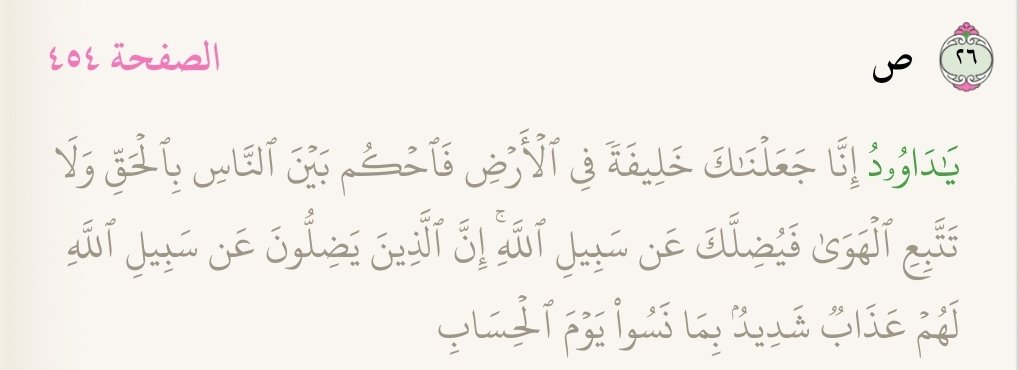 ٢٦ ص الصفحة ٤٥٤
يَٰدَاوُۥدُ إِنَّا جَعَلْنَٰكَ خَلِيفَةً فِي ٱلْأَرْضِ فَٱحْكُم بَيْنَ ٱلنَّاسِ بِٱلْحَقِّ وَلَا
تَتَّبِعِ ٱلْهَوَىٰ فَيُضِلَّكَ عَن سَبِيلِ ٱللَّهِۚ إِنَّ ٱلَّذِينَ يَضِلُّونَ عَن سَبِيلِ ٱللَّهِ
لَهُمْ عَذَابٌ شَدِيدُۢ بِمَا نَسُوا۟ يَوْمَ ٱلْحِسَابِ